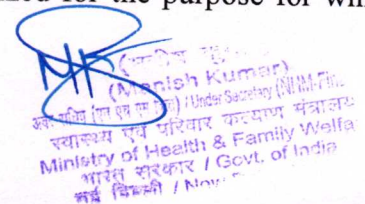 for the purpose for
(Manish Kumar)
अवर सचिव / Under Secretary (NHM-
स्वास्थ्य एवं परिवार कल्याण मंत्रालय
Ministry of Health & Family Welfa
भारत सरकार / Govt. of India
नई दिल्ली / New